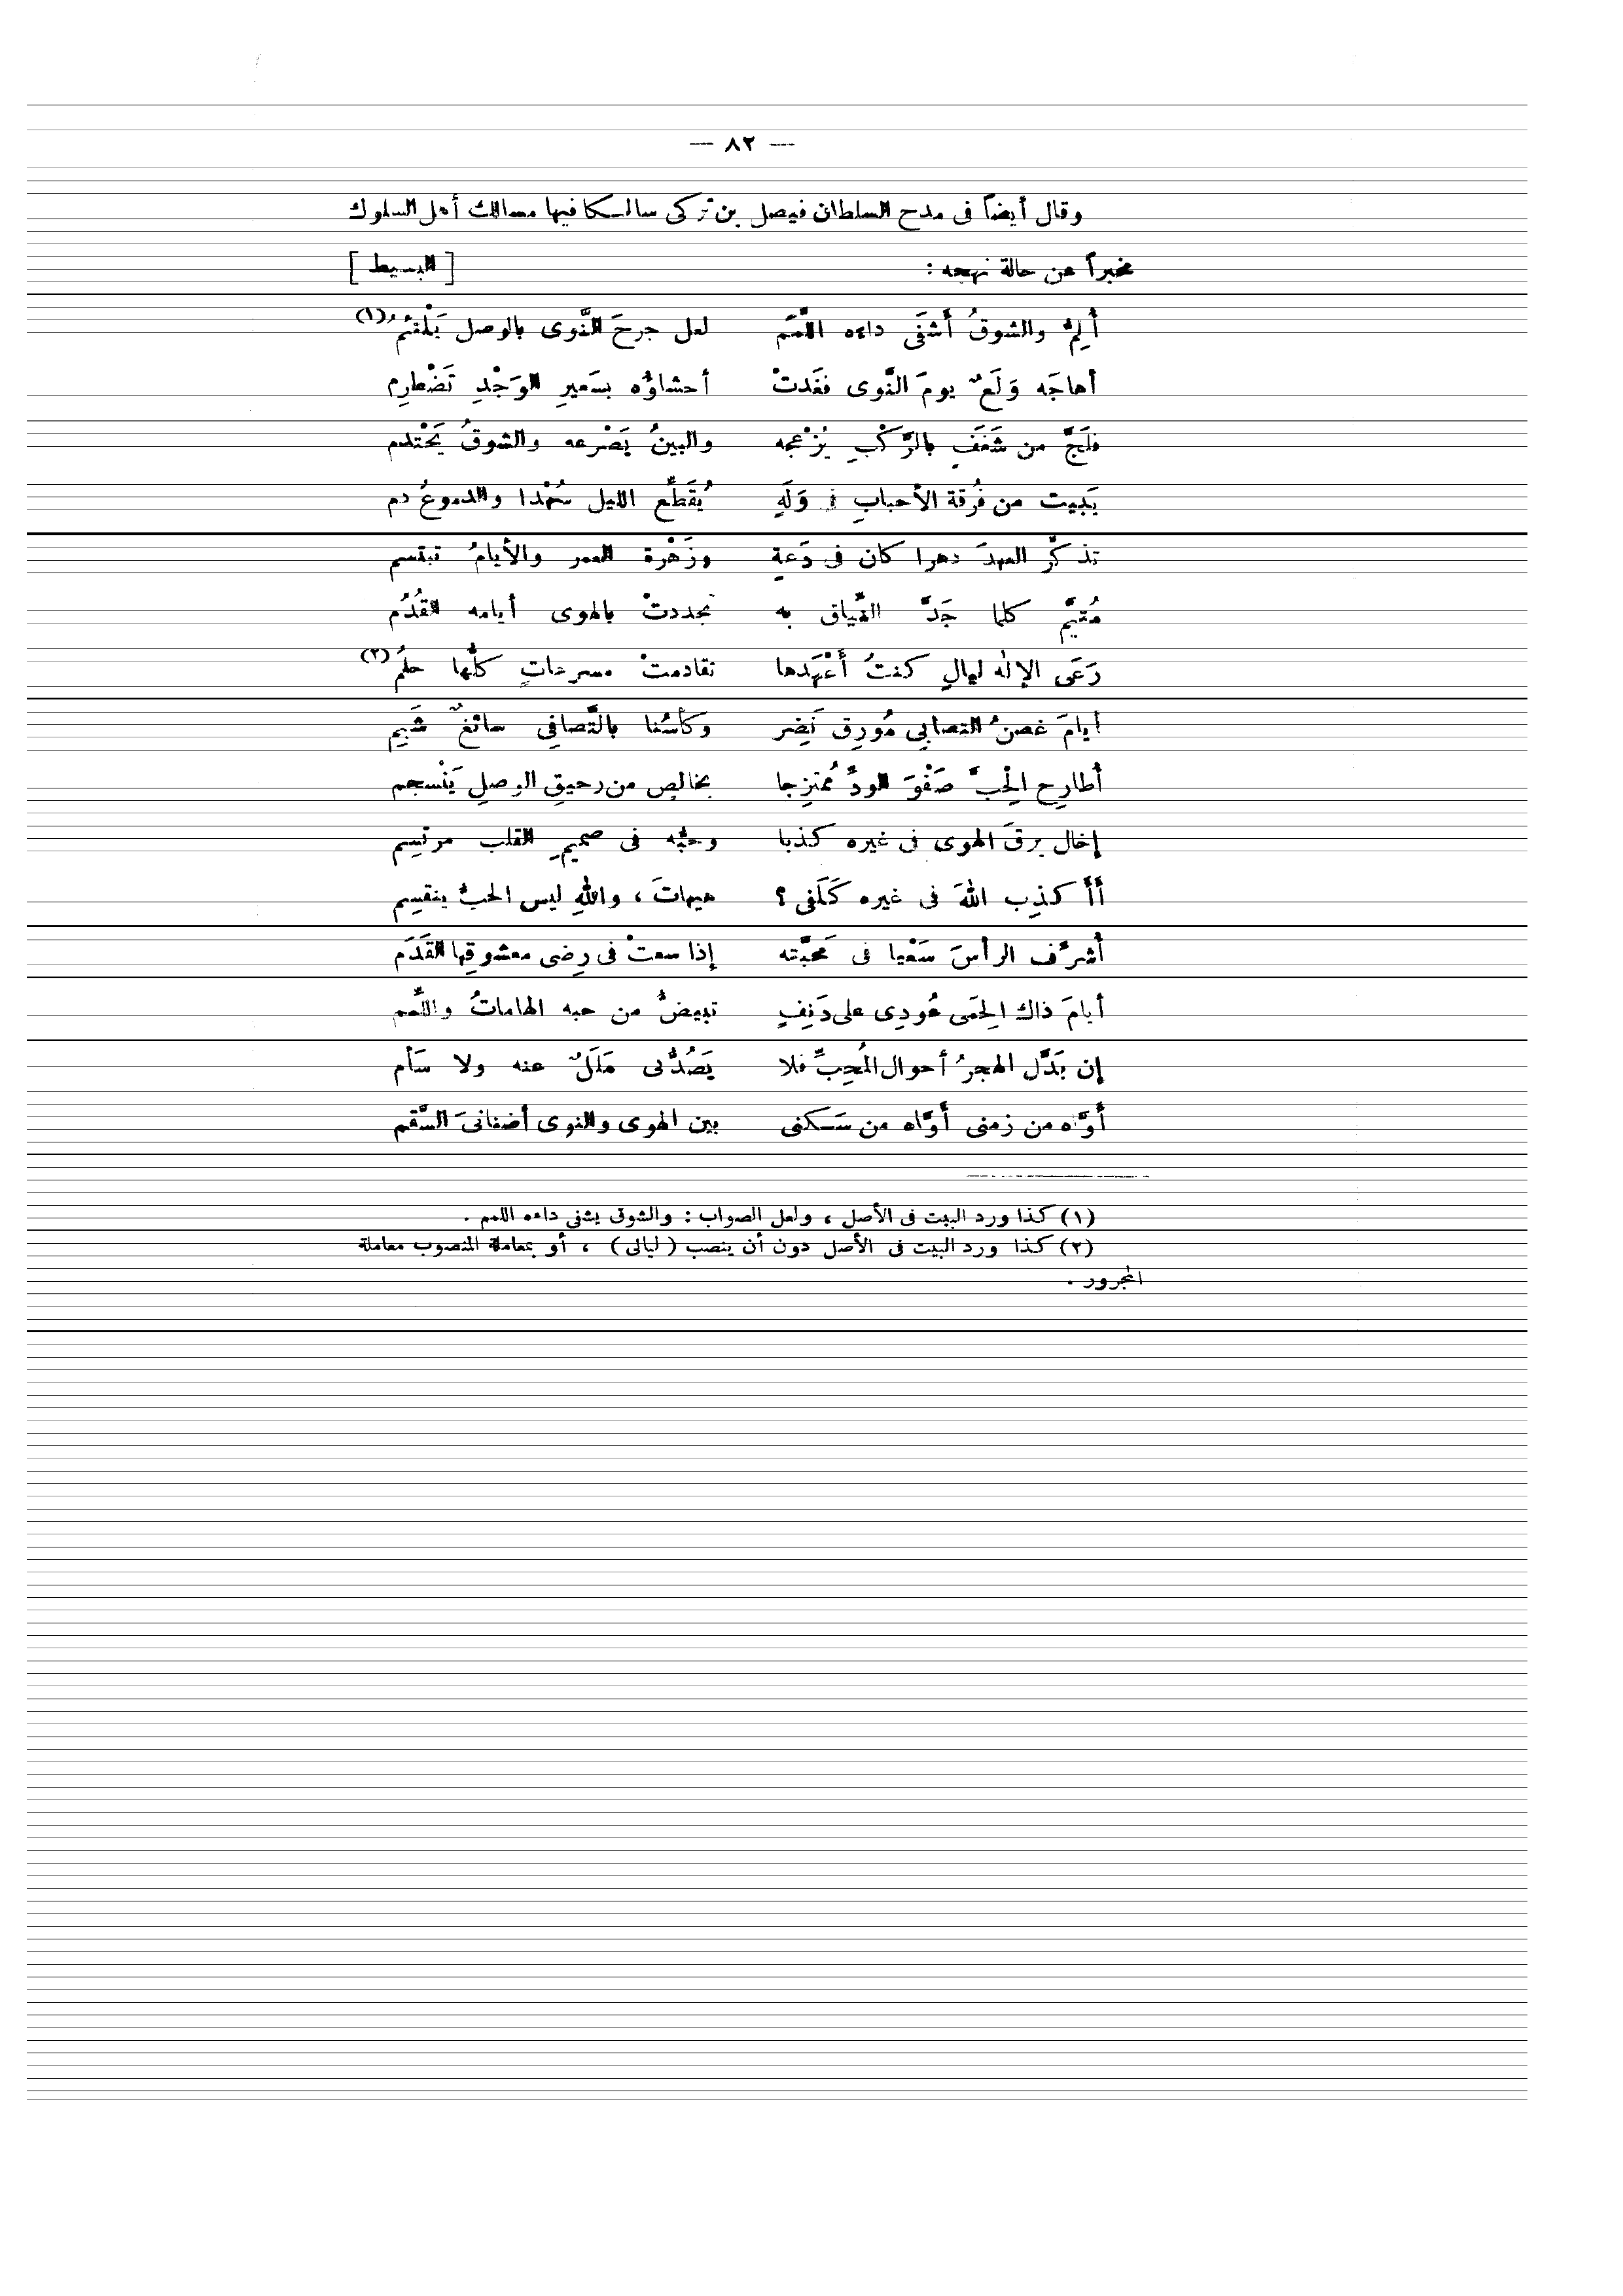 — ٨٢ —
وقال أيضاً فى مدح السلطان فيصل بن تركى سالكا فيها مسالك أهل السلوك
مخبراً عن حالة نهجه : [ البسيط ]
أَلِمَّ والشوقُ أَشفَى داءه اللَّمَم لعل جرحَ النَّوى بالوصل يَلْتئمُ(١)
أهاجَه وَلَعٌ يومَ النَّوى فغَدتْ أحشاؤُه بسَعيرِ الوَجْدِ تَضْطرِم
فلَجَّ من شَغَفٍ بالرَّكْبِ يُزْعجه والبينُ يَصْرعه والشوقُ يَحْتدم
يَبيت من فُرقة الأحبابِ فى وَلَهٍ يُقَطِّع الليل سُهْدا والدموعُ دم
تذكَّر العهدَ دهرا كان فى دَعةٍ وزَهْرة العمر والأيامُ تبتسم
مُتيَّم كلما جَدَّ الفِّياق به تجددتْ بالهوى أيامه القُدُم
رَعَى الإله ليالٍ كنتُ أَعْهَدها تقادمتْ مسرعاتٍ كلُّها حلمُ(٢)
أيامَ غصنُ التصابِى مُورِق نَضِر وكأسُنا بالتَّصافِى سائغٌ شَبِم
أُطارِح الحِبَّ صَفْوَ الودِّ مُمتزِجا بخالصٍ من رحيقِ الوصلِ يَنْسجم
إخال برقَ الهوى فى غيره كذبا وحبُّه فى صميمِ القلب مرتسِم
أَأَكذِب اللهَ فى غيره كَلَفى ؟ هيهاتَ ، واللهِ ليس الحبُّ ينقسِم
أُشرِّف الرأسَ سَعْيا فى مَحبَّته إذا سعتْ فى رِضى معشوقِها القَدَم
أيامَ ذاك الحِمَى عُودِى على دَنِفٍ تبيضُّ من حبه الهاماتُ واللِّمم
إن بَدَّل الهجرُ أحوال المُحِبِّ فلا يَصُدُّنى مَلَلٌ عنه ولا سَأم
أوَّاه من زمنى أوَّاه من سَكنى بين الهوى والنوى أضنانىَ السَّقم
(١) كذا ورد البيت فى الأصل ، ولعل الصواب : والشوق يشفى داءه اللمم .
(٢) كذا ورد البيت فى الأصل دون أن ينصب ( ليالى ) ، أو بمعاملة المنصوب معاملة
المجرور .